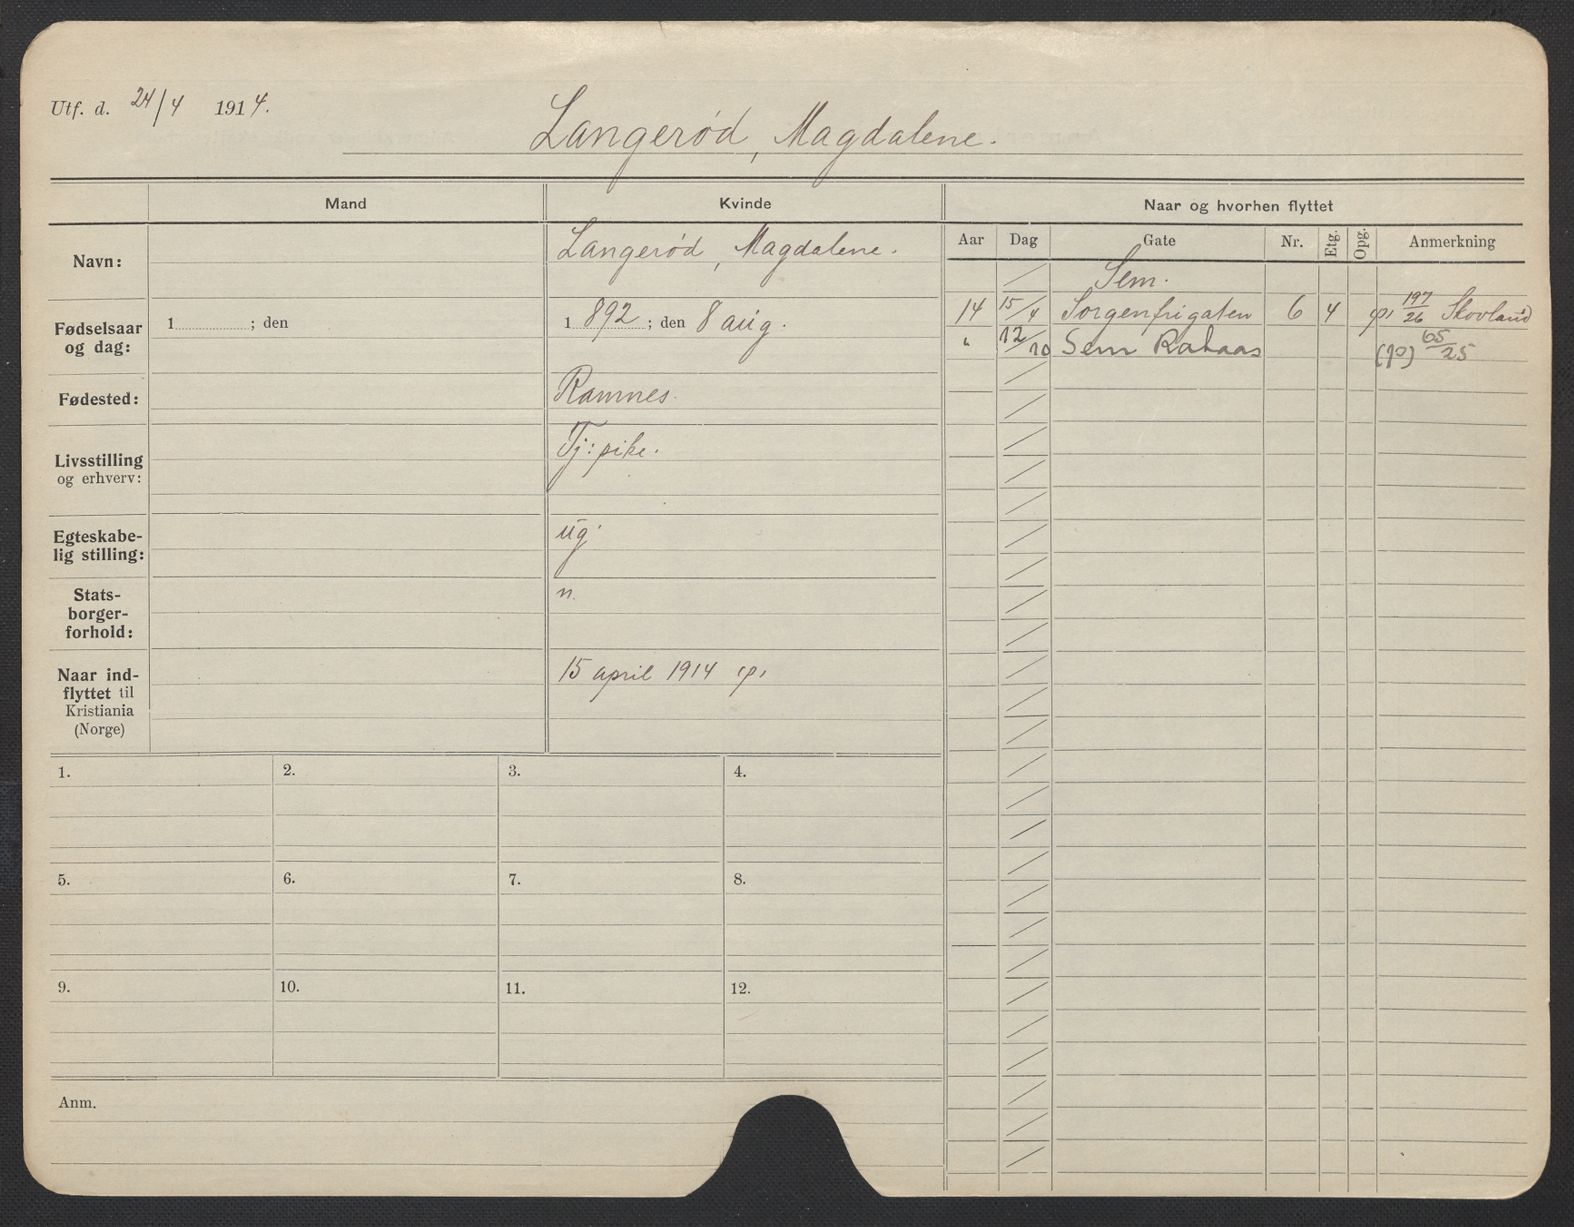 Utf. d. 24/4 1914.
Langerød, Magdalene.
Mand
Kvinde
Naar og hvorhen flyttet
Navn:
Langerød, Magdalene.
Aar Dag Gate Nr. Etg. Opg. Anmerkning
Sem.
Fødselsaar og dag:
1 ; den
1 892 ; den 8 aug.
14 15/4 Sorgenfrigaten 6 4 197/26 Skovland
" 12/10 Sem 65/25
Fødested:
Ramnes.
Livsstilling
og erhverv:
Tj: pike.
Egteskabe-
lig stilling:
ug.
Stats-
borger-
forhold:
n.
Naar ind-
flyttet til
Kristiania
(Norge)
15 april 1914
1. 2. 3. 4.
5. 6. 7. 8.
9. 10. 11. 12.
Anm.